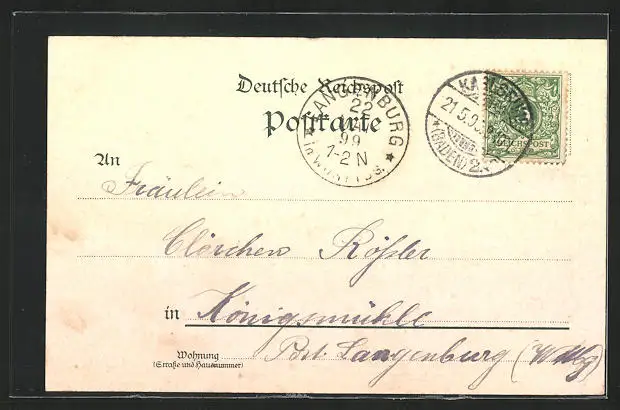 Deutsche Reichspost
Postkarte
LANGENBURG
22
99
1-2 N
in WÜRTTBG.
KARLSRUHE
21.5.9
(BADEN) 2.
REICHSPOST
An
Fräulein
Clärchen Rößler
in Königsmühle
Wohnung
(Straße und Hausnummer)
Post Langenburg (Wttbg)